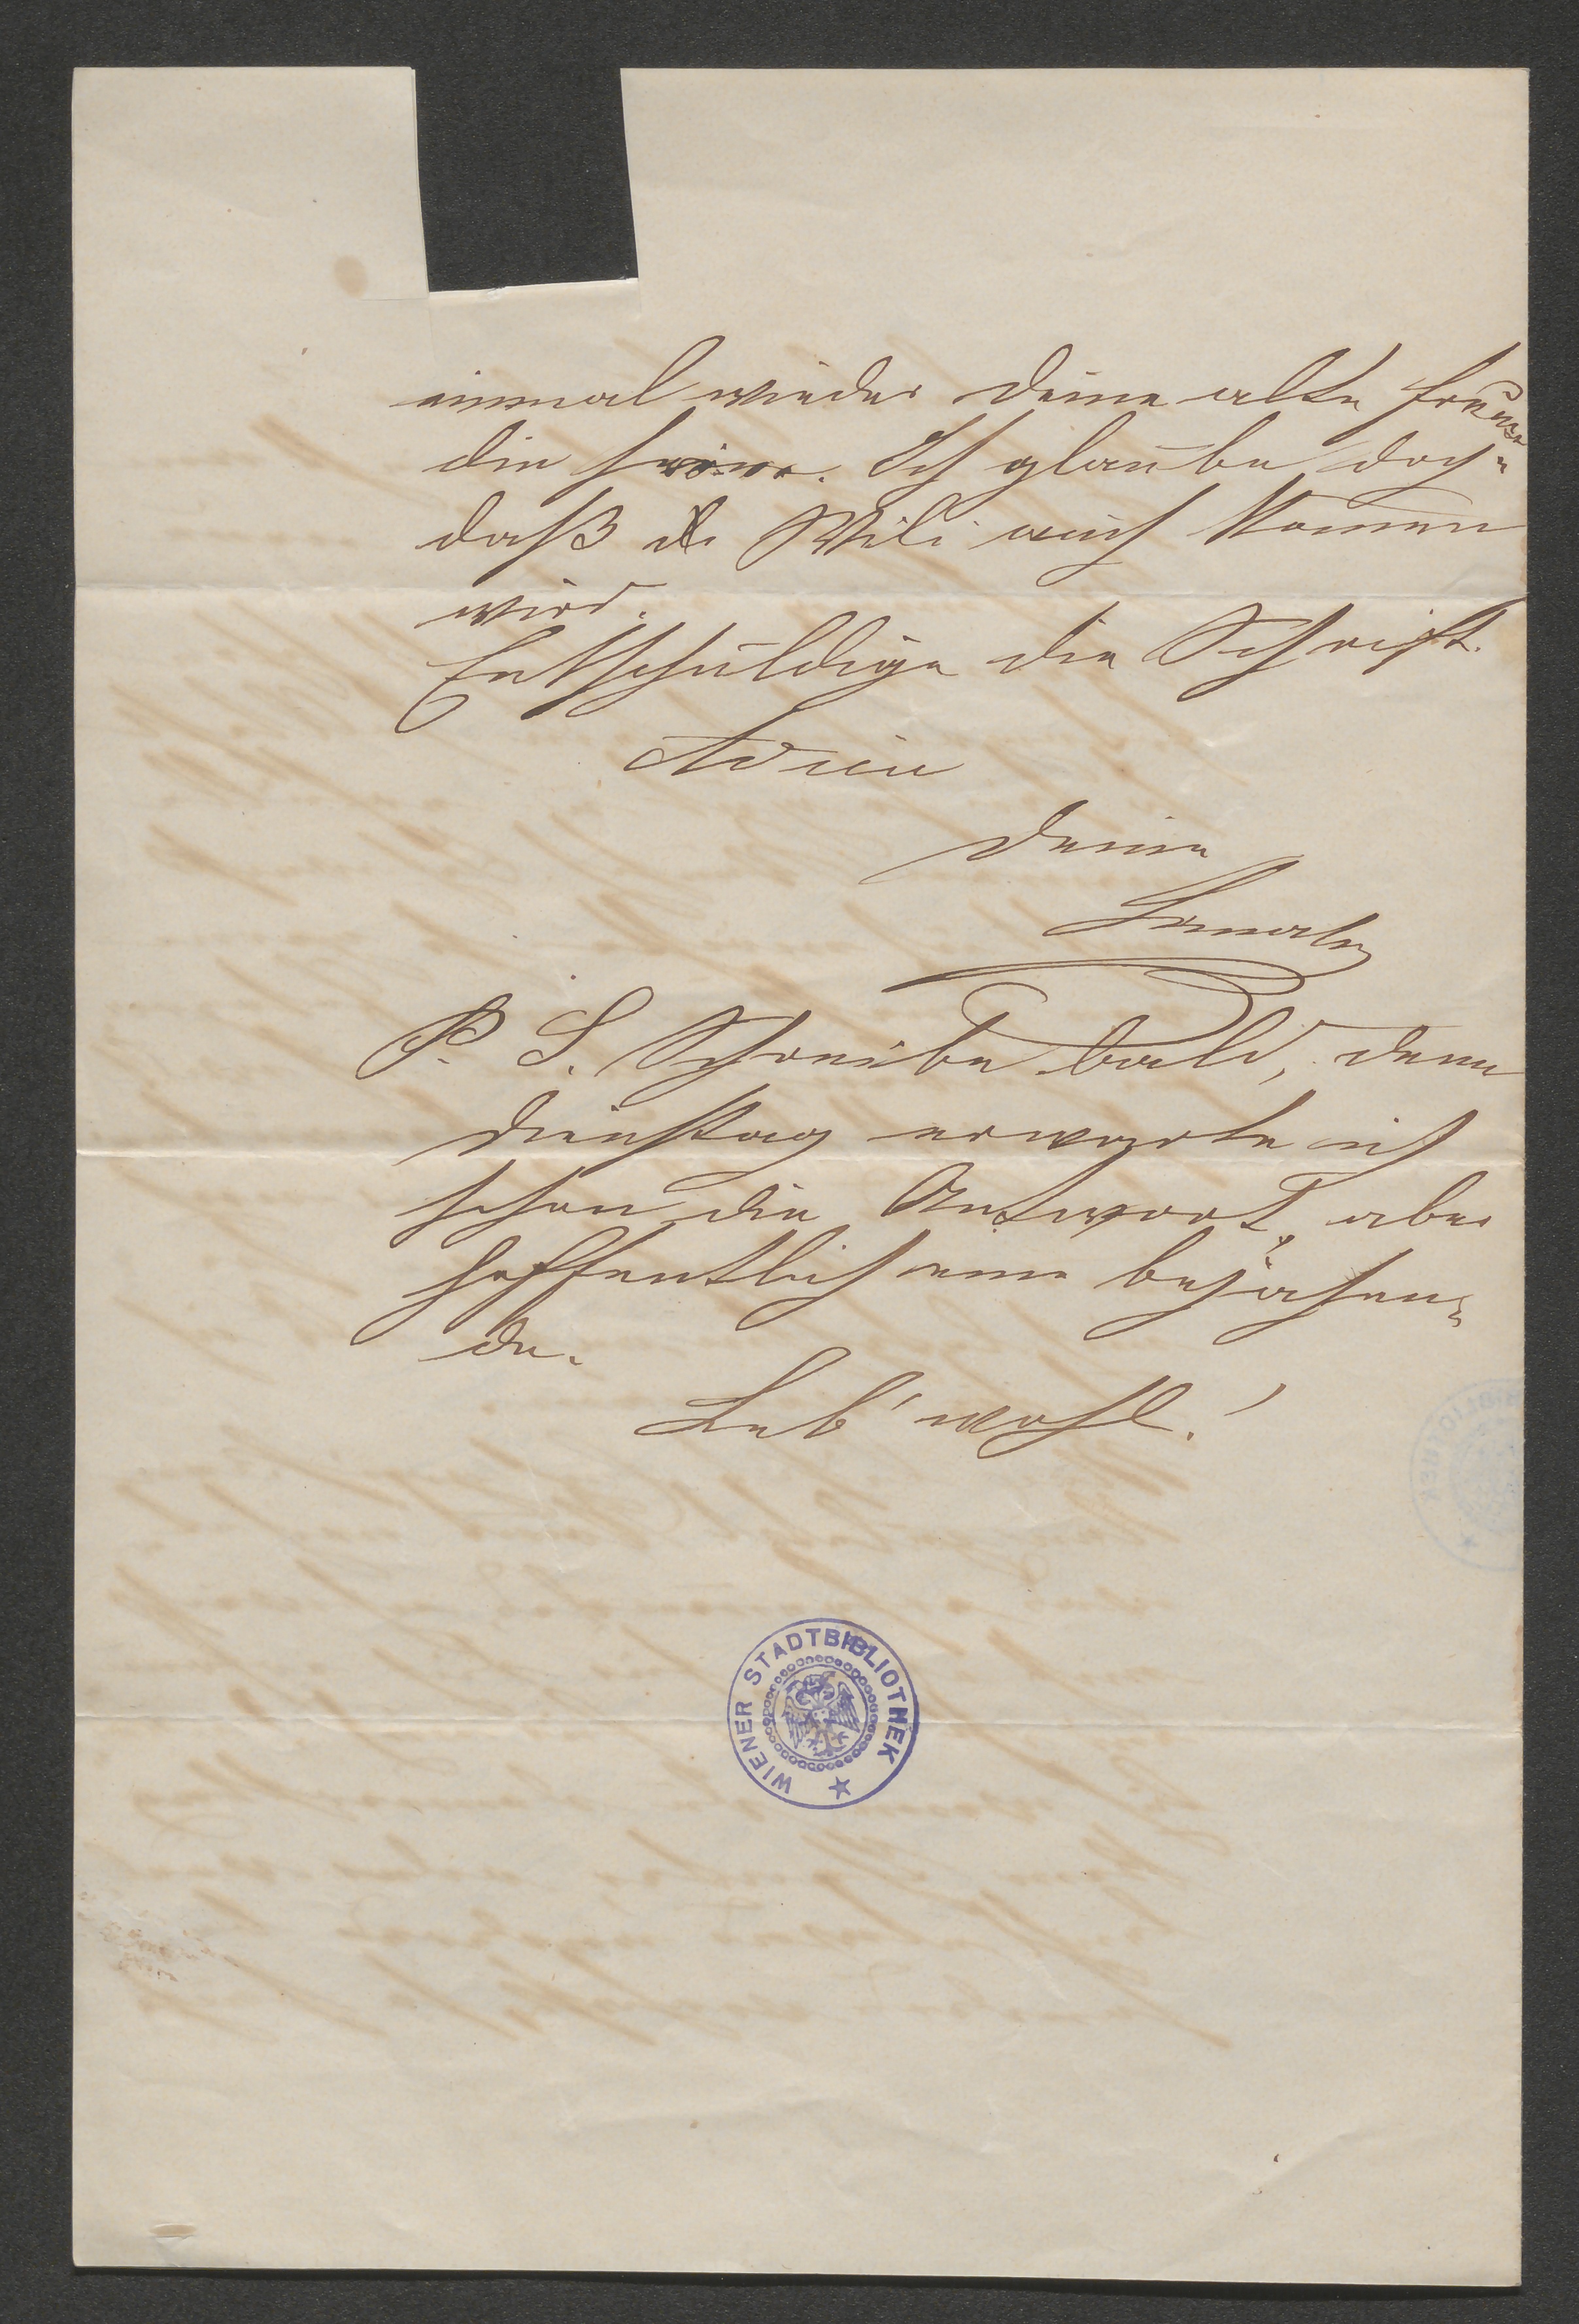 einmal wieder Deine alte Freun-
din
. Ich glaube doch
daß Mili auch kommen
wird.
Entschuldige die Schrift.
Adieu
Deine
P. S. Schreibe bald, denn
Dienstag erwarte ich
schon die Antwort, aber
hoffentlich eine bejahen-
de.
Leb' wohl!
WIENER STADTBIBLIOTHEK